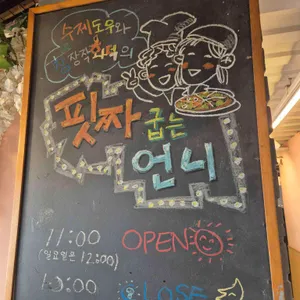 수제도우와
참장작화덕의
핏짜
굽는
언니
11:00
(일요일은 12:00)
OPEN
10:00
CLOSE